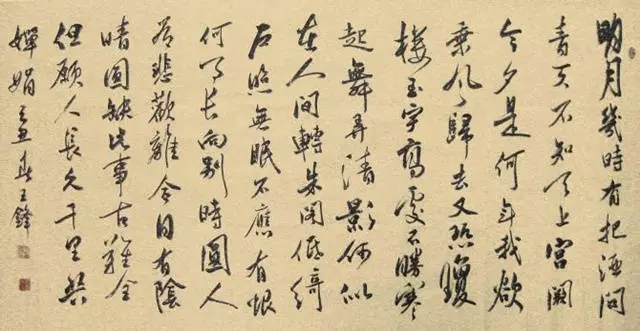 明月幾時有把酒問
青天不知天上宮闕
今夕是何年我欲
乘風歸去又恐瓊
樓玉宇高處不勝寒
起舞弄清影何似
在人間轉朱閣低綺
户照無眠不應有恨
何事長向別時圓人
有悲歡離合月有陰
晴圓缺此事古難全
但願人長久千里共
嬋娟 春王鋒